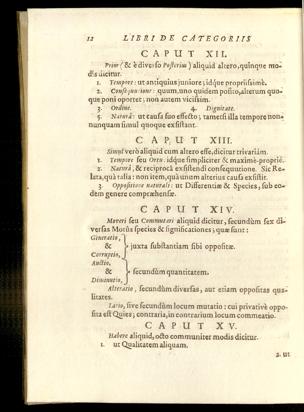 12 LIBRI DE CATEGORIIS
CAPUT XII.
Prius (& è diverso Posterius) aliquid altero, quinque mo-
dis dicitur.
1. Tempore: ut antiquius juniore; idque propriissimè.
2. Consequutione: quum, uno quidem posito, alterum quo-
que poni oportet; non autem vicissim.
3. Ordine. 4. Dignitate.
5. Naturâ: ut causa suo effectu, tametsi illa tempore non-
nunquam simul quoque exsistant.
CAPUT XIII.
Simul verò aliquid cum altero esse, dicitur trivariàm.
1. Tempore seu Ortu: idque simpliciter & maximè propriè.
2. Naturâ, & reciprocâ exsistendi consequutione. Sic Re-
lata, quà talia: non item, quà unum alterius causa exsistit.
3. Oppositione naturali: ut Differentiæ & Species, sub eo-
dem genere compræhensæ.
CAPUT XIV.
Moveri seu Commutari aliquid dicitur, secundùm sex di-
versas Motûs species & significationes; quæ sunt:
Generatio,
& juxta substantiam sibi oppositæ.
Corruptio,
Auctio,
& secundùm quantitatem.
Diminutio,
Alteratio, secundùm diversas, aut etiam oppositas qua-
litates.
Latio, sive secundùm locum mutatio: cui privativè oppo-
sita est Quies; contraria, in contrarium locum commeatio.
CAPUT XV.
Habere aliquid, octo communiter modis dicitur.
1. ut Qualitatem aliquam.
2. ut